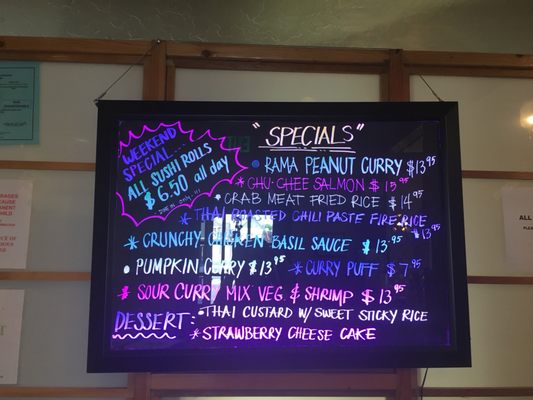 WEEKEND
SPECIAL...
ALL SUSHI ROLLS
$6.50 all day
"SPECIALS"
RAMA PEANUT CURRY $13.95
* CHU-CHEE SALMON $15.95
CRAB MEAT FRIED RICE $14.95
* THAI ROASTED CHILI PASTE FIRE RICE
$13.95
* CRUNCHY CHICKEN BASIL SAUCE $13.95
• PUMPKIN CURRY $13.95 * CURRY PUFF $7.95
* SOUR CURRY MIX VEG & SHRIMP $13.95
DESSERT: • THAI CUSTARD W/ SWEET STICKY RICE
* STRAWBERRY CHEESE CAKE
ALL